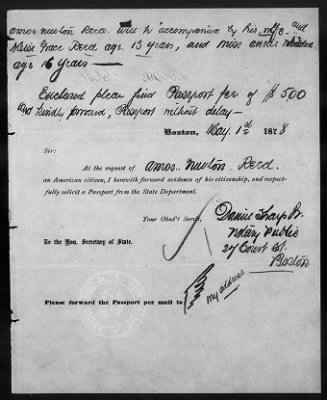 Amos Newton Reed. will be accompanied by his wife. and
Grace Reed age. 13 years, and miss
age 16 years —
Enclosed please find Passport fee of $ 5.00
and kindly forward, Passport without delay —
Boston, May 1st 1878
Sir:
At the request of Amos. Newton. Reed.
an American citizen, I herewith forward evidence of his citizenship, and respect-
fully solicit a Passport from the State Department.
Your Obed't Serv't,
Daniel Sharp Jr.
Notary Public
To the Hon. Secretary of State.
27 Court St.
Boston
Please forward the Passport per mail to
my address